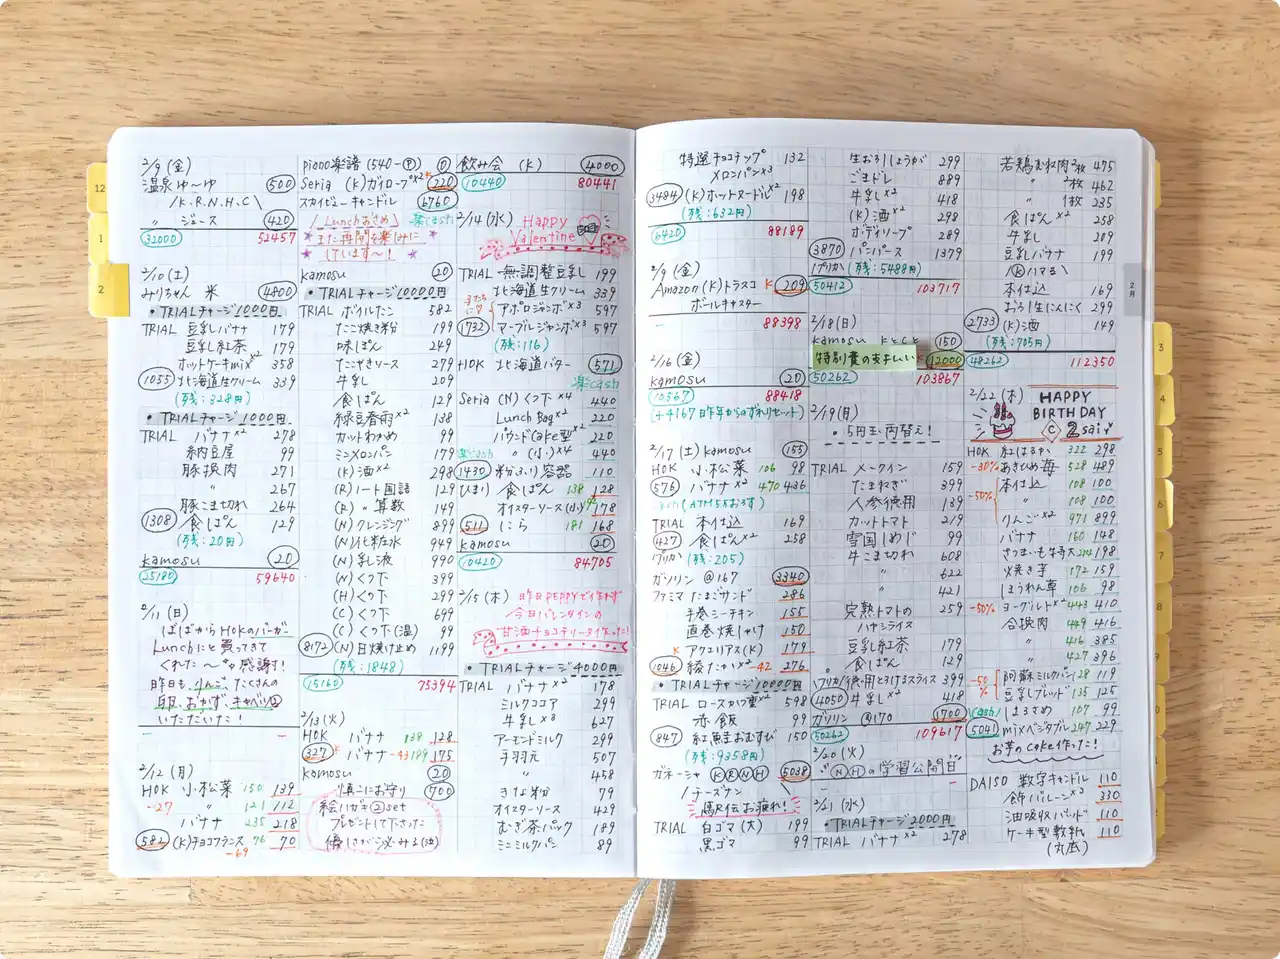 12
1
2
2/9 (金)
温泉ゆ〜ゆ 500
/K.R.N.H.C\
〃 ジュース 420
32000 52457
2/10 (土)
みりちゃん 米 4800
• TRIALチャージ1000円
TRIAL 豆乳バナナ 179
豆乳紅茶 179
ホットケーキmix 358
1055 北海道生クリーム 339
(残:328円)
• TRIALチャージ1000円
TRIAL バナナ×2 278
納豆屋 99
豚挽肉 271
〃 267
豚こま切れ 264
1308 食ぱん 129
(残:20円)
kamosu 20
25180 59640
2/11 (日)
ばぁばからHOKのバーガー
Lunchにと買ってきて
くれた〜 感謝!
昨日も、りんご、たくさんの
卵、おかず、キャベツ②
いただいた!
2/12 (月)
HOK 小松菜 150 139
-27 〃 121 112
バナナ 235 218
582 (K)チョコフランス 76 70
-69
piano楽譜 (540-P) 0
Seria (K)ガイロープ×2 K 220
スカイビューキャンドル 6760
Lunchおさめ 楽cash
また再開を楽しみに
しています〜!
kamosu 20
• TRIALチャージ10000円
TRIAL ボイルたこ 582
たこ焼き粉 199
味ぽん 249
たこやきソース 279
牛乳 209
食ぱん 129
緑豆春雨×2 138
カットわかめ 99
ミニメロンパン 179
(K)酒×2 298
(R)ノート国語 129
(R) 〃 算数 149
(N)クレンジング 899
(N)化粧水 949
(N)乳液 990
(N)くつ下 399
(H)くつ下 299
(C)くつ下 699
(C)くつ下(温) 99
8172 (N)日焼け止め 1199
(残:1848)
15160 75394
2/13 (火)
HOK バナナ 138 128
327 K バナナ -43 189 175
kamosu 20
慎二にお守り 700
絵はがき②set
プレゼントして下さった
優しさが心にしみる(泣)
飲み会 (K) 4000
10440 80441
2/14 (水) Happy
Valentine
TRIAL 無調整豆乳 199
北海道生クリーム 339
アポロジャンボ×3 597
1732 マーブルジャンボ×3 597
(残:116)
HOK 北海道バター 571
楽cash
Seria (N)くつ下×4 440
Lunch Bag×2 220
パウンドCake型×2 220
楽cash 〃 (小)×4 440
1430 粉ふり容器 110
ひまり 食ぱん 138 128
オイスターソース(小) 178
511 にら 181 168
kamosu 20
10420 84705
2/15 (木) 昨日PEPPYで作れず
今日バレンタインの
甘酒チョコテリーヌ作った!
• TRIALチャージ4000円
TRIAL バナナ×2 178
ミルクココア 299
牛乳×3 627
アーモンドミルク 299
手羽元 507
〃 458
きな粉 79
オイスターソース 429
むぎ茶パック 189
ミニミルクパン 89
特選チョコチップ 132
メロンパン×3
3484 (K)ホットヌードル×2 198
(残:632円)
6420 88189
2/9 (金)
Amazon (K)トラスコ K 209
ボールキャスター
88398
2/16 (金)
kamosu 20
10567 88418
(+4167 昨年からのずれリセット)
2/17 (土) kamosu 155
HOK 小松菜 106 98
576 バナナ×2 470 436
(ATM5万おろす)
TRIAL 本仕込 169
427 食ぱん×2 258
プリカ (残:205)
ガソリン @167 3340
ファミマ たまごサンド 286
手巻シーチキン 155
直巻焼しゃけ 150
K アクエリアス(K) 179
1046 綾たか×2 -42 276
• TRIALチャージ10000円
TRIAL ロースカツ重×2 598
赤飯 99
847 紅鮭おむすび 150
(残:9358円)
ガネーシャ K R N H 5038
/チーズナン\
駅伝お疲れ!
TRIAL 白ゴマ(大) 199
黒ゴマ 99
生おろししょうが 299
ごまドレ 889
牛乳×2 418
(K)酒×2 298
ボディソープ 289
3870 パンパース 1379
プリカ (残:5488円)
50412 103717
2/18 (日)
kamosu KとCと 150
特別費の支払い K 12000
50262 103867
2/19 (月)
• 5円玉両替え!
TRIAL メークイン 159
たまねぎ 399
人参使用 139
カットトマト 219
雪国しめじ 99
牛こま切れ 608
〃 622
〃 421
完熟トマトの 259
ハヤシライス
豆乳紅茶 179
食ぱん 129
パリカ 使用とろけるスライス 399
4050 牛乳×2 418
ガソリン @170 1700
50262 109617
2/20 (火)
NHの学習公開日
2/21 (水)
• TRIALチャージ2000円
TRIAL バナナ×2 278
若鶏むね肉2枚 475
〃 2枚 462
〃 1枚 235
食ぱん×2 258
牛乳 209
豆乳バナナ 199
/Kハマる\
本仕込 169
おろし生にんにく 299
2733 (K)酒 149
(残:705円)
48262 112350
2/22 (木) HAPPY
BIRTHDAY
C 2sai
HOK 紅はるか 322 298
-30% あきひめ苺 528 489
-50% 本仕込 108 100
〃 108 100
りんご×2 971 899
バナナ 160 148
さつまいも特大 214 198
焼き芋 172 159
ほうれん草 106 98
-50% ヨーグルト×2 443 410
合挽肉 449 416
〃 416 385
〃 427 396
-50% 阿蘇ミルクパン 128 119
豆乳ブレッド 135 125
cash はるさめ 107 99
5041 mixベジタブル 247 229
お芋のcake作った!
DAISO 数字キャンドル 110
飾バルーン×3 330
油吸収パッド 110
ケーキ型敷紙 110
(丸底)
2月
3
4
5
6
7
8
9